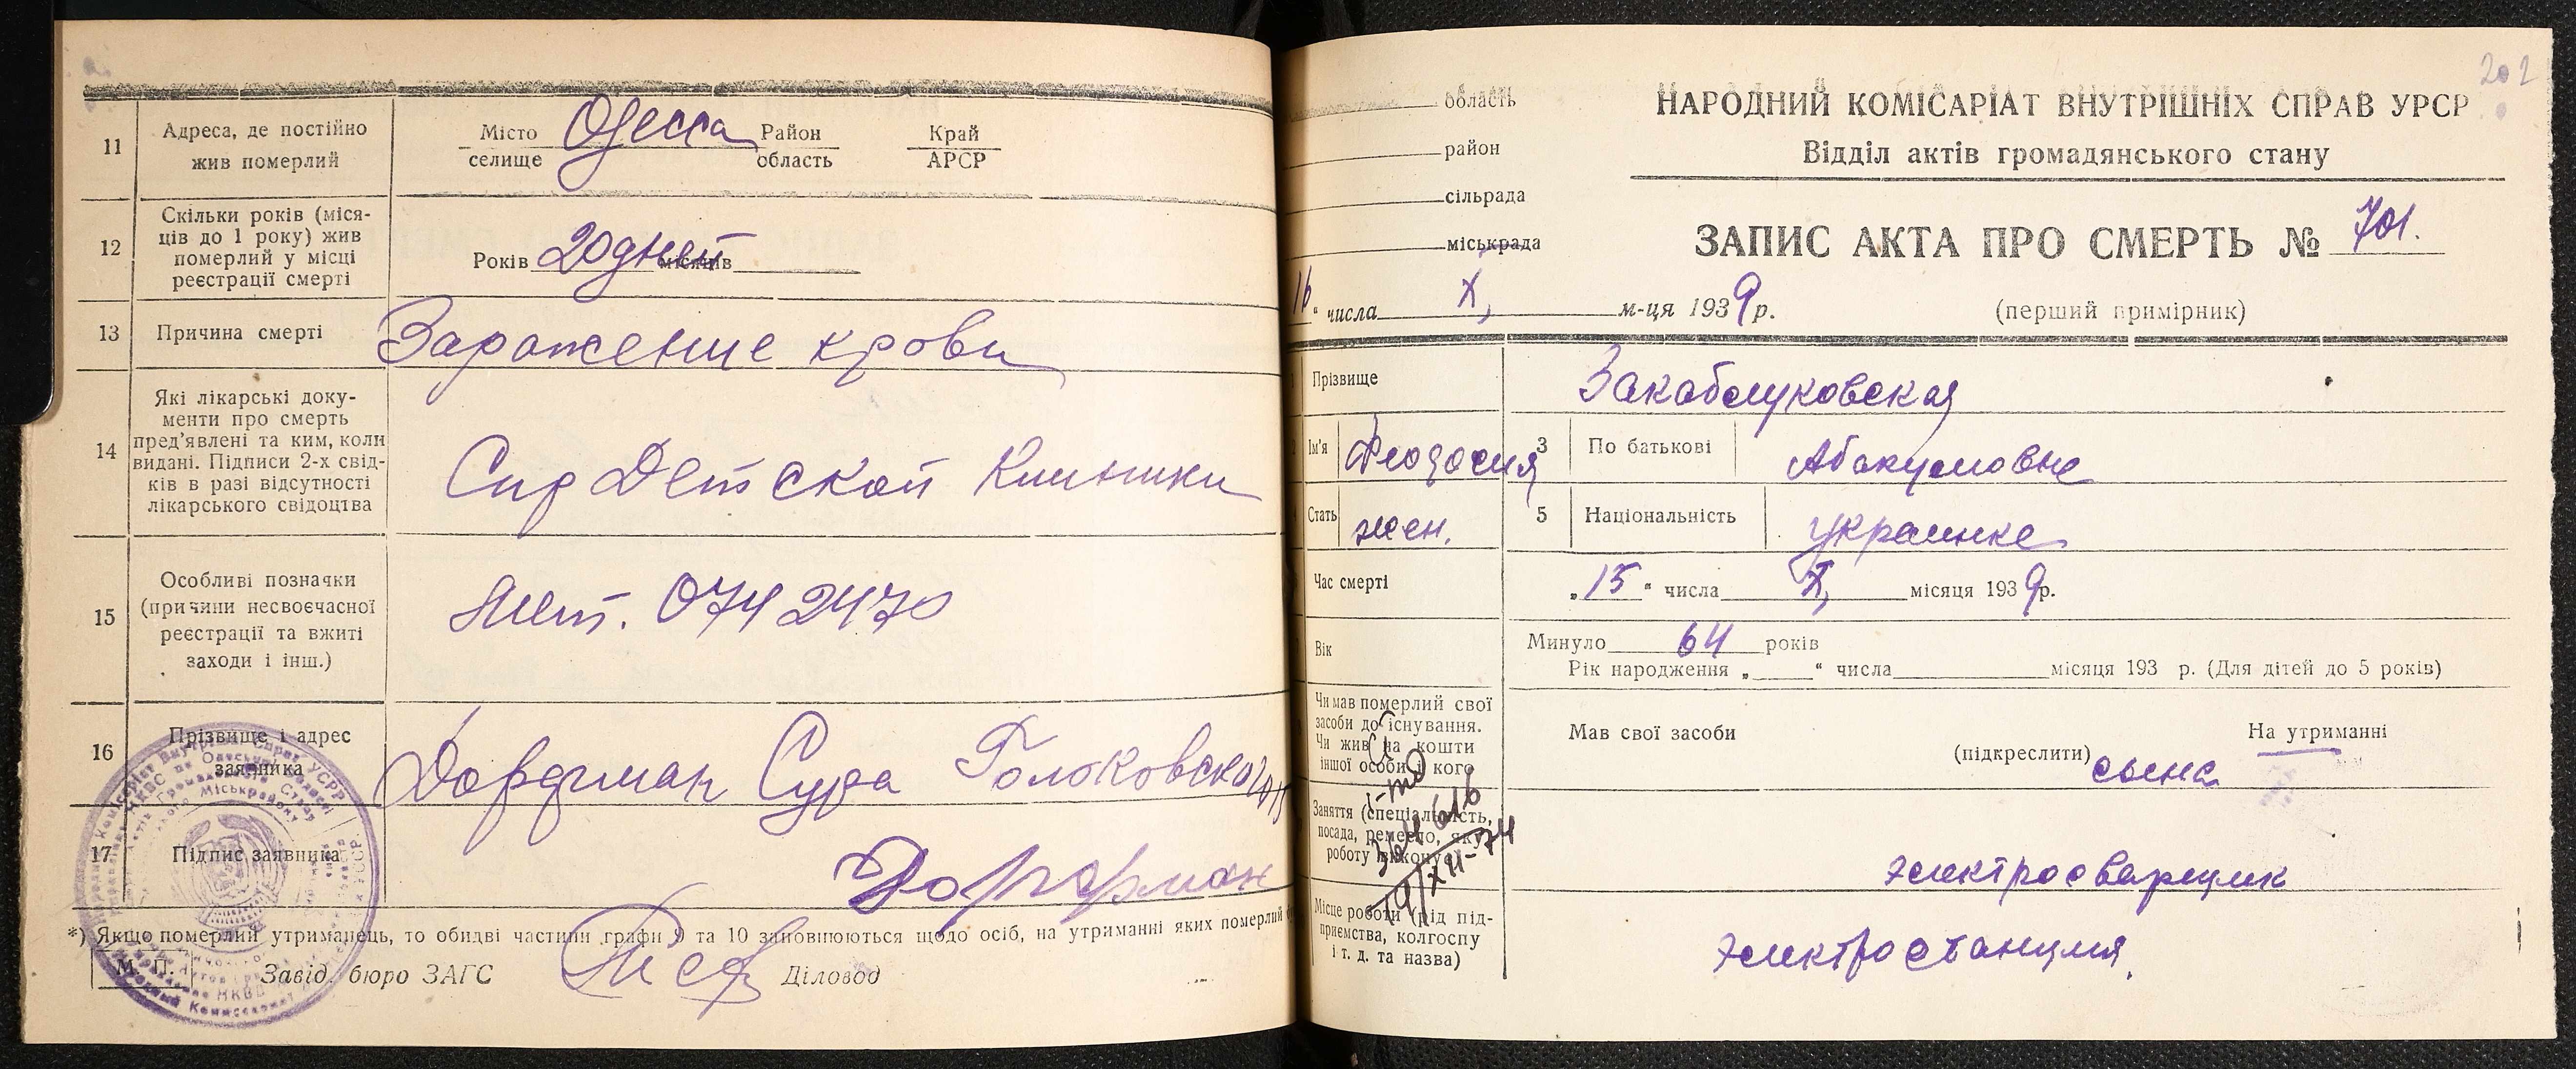 11
Адреса, де постійно
жив померлий
Місто Одесса Район Край
селище область АРСР
12
Скільки років (міся-
ців до 1 року) жив
померлий у місці
реєстрації смерті
Років 20 дней місяців
13
Причина смерті
Заражение крови
14
Які лікарські доку-
менти про смерть
пред'явлені та ким, коли
видані. Підписи 2-х свід-
ків в разі відсутності
лікарського свідоцтва
Спр Детской Клиники
15
Особливі позначки
(причини несвоєчасної
реєстрації та вжиті
заходи і інш.)
0742470
16
Прізвище і адрес
заявника
17
Підпис заявника
*) Якщо померлий утриманець, то обидві частини графи 9 та 10 заповнюються щодо осіб, на утриманні яких померлий
М. П.
Завід. бюро ЗАГС
Діловод
202
область
район
сільрада
міськрада
16 " числа X, м-ця 1939 р.
НАРОДНИЙ КОМІСАРІАТ ВНУТРІШНІХ СПРАВ УРСР
Відділ актів громадянського стану
ЗАПИС АКТА ПРО СМЕРТЬ № 701.
(перший примірник)
Прізвище
Закаблуковская
Ім'я
Феодосия
3
По батькові
Абакумовна
Стать
жен.
5
Національність
украинка
Час смерті
„ 15 " числа X, місяця 1939 р.
Вік
Минуло 64 років
Рік народження „ " числа місяця 193 р. (Для дітей до 5 років)
Чи мав померлий свої
засоби до існування.
Чи жив на кошти
іншої особи і кого
Мав свої засоби
(підкреслити)
На утриманні
сына
Заняття (спеціальність,
посада, ремесло, яку
роботу виконує)
электросварщик
Місце роботи (рід під-
приємства, колгоспу
і т. д. та назва)
электростанция